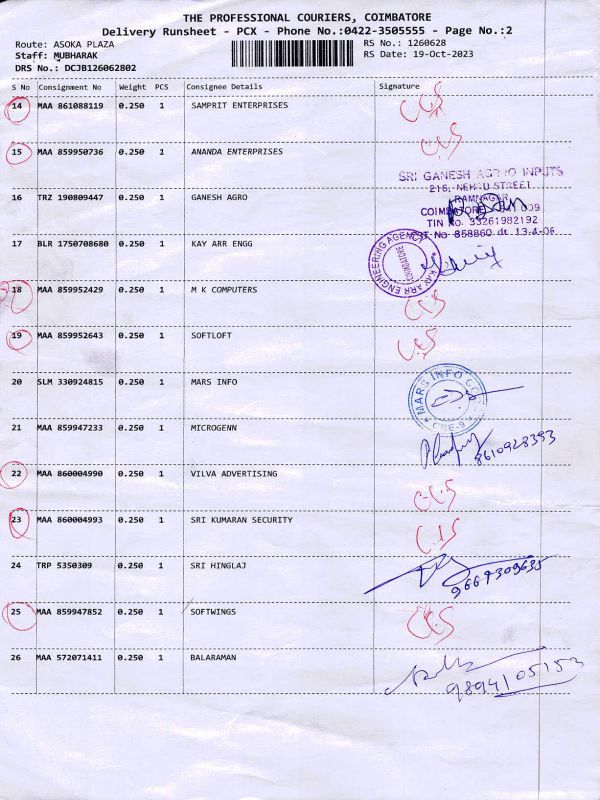 THE PROFESSIONAL COURIERS, COIMBATORE
Delivery Runsheet - PCX - Phone No.:0422-3505555 - Page No.:2
Route: ASOKA PLAZA
RS No.: 1260628
Staff: MUBHARAK
RS Date: 19-Oct-2023
DRS No.: DCJB126062802
S No Consignment No Weight PCS Consignee Details Signature
14 MAA 861088119 0.250 1 SAMPRIT ENTERPRISES
15 MAA 859950736 0.250 1 ANANDA ENTERPRISES
SRI GANESH AGRO INPUTS
216, NEHRU STREET
16 TRZ 190809447 0.250 1 GANESH AGRO
RAMNAGAR
COIMBATORE 009
TIN No. 33261982192
CST No 858860 dt. 13-4-06
17 BLR 1750708680 0.250 1 KAY ARR ENGG
KAY ARR ENGINEERING AGENCY
COIMBATORE
18 MAA 859952429 0.250 1 M K COMPUTERS
19 MAA 859952643 0.250 1 SOFTLOFT
20 SLM 330924815 0.250 1 MARS INFO
MARS INFO
CBE-9
21 MAA 859947233 0.250 1 MICROGENN
8610928393
22 MAA 860004990 0.250 1 VILVA ADVERTISING
23 MAA 860004993 0.250 1 SRI KUMARAN SECURITY
24 TRP 5350309 0.250 1 SRI HINGLAJ
9664309635
25 MAA 859947852 0.250 1 SOFTWINGS
26 MAA 572071411 0.250 1 BALARAMAN
9894105153